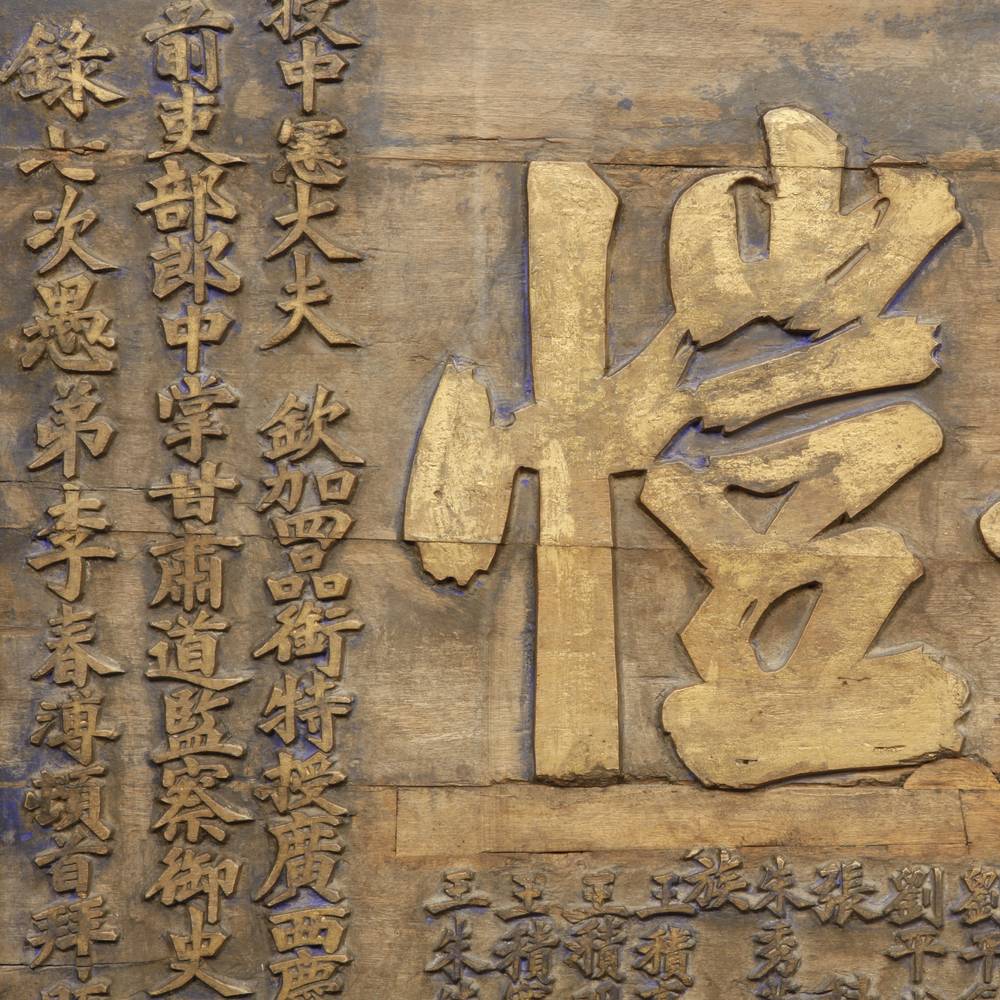 愷
授中憲大夫 欽加四品銜特授廣西慶
前吏部郎中掌甘肅道監察御史
錄七次愚弟李春溥頓首拜
劉平
劉平
張
朱秀
族
王積
王積
王積
王朱